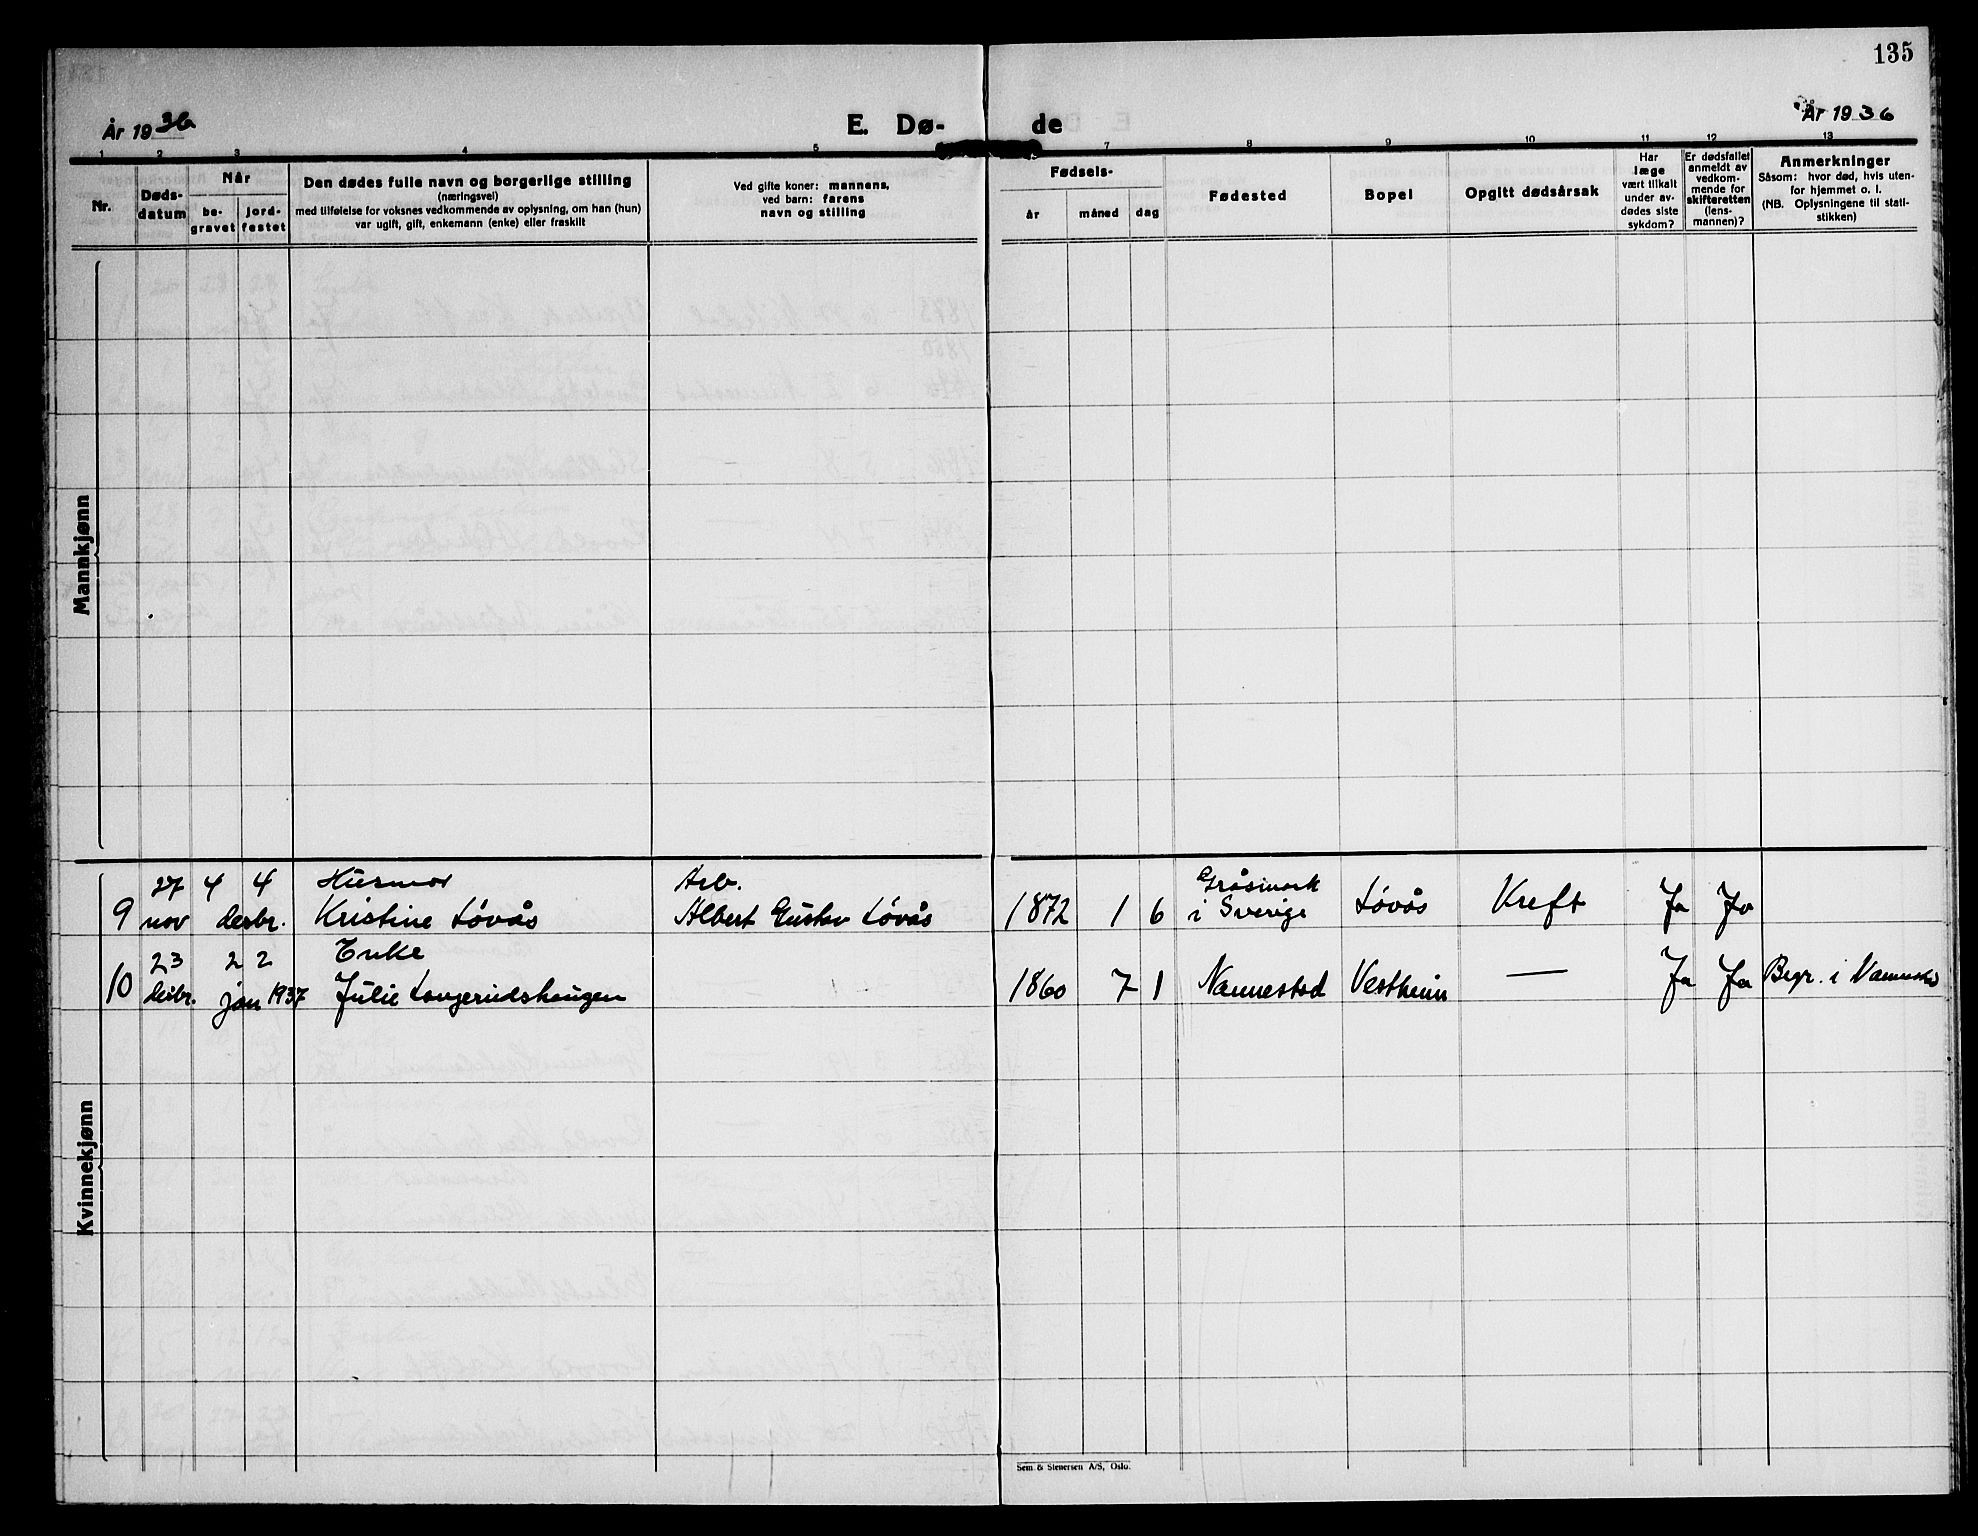 135
År 1936
E. Dø-
de
År 1936
1 2 3 4 5 7 8 9 10 11 12 13
Nr.
Døds-
datum
Når
be-
gravet
jord-
festet
Den dødes fulle navn og borgerlige stilling
(næringsvei)
med tilføielse for voksnes vedkommende av oplysning, om han (hun)
var ugift, gift, enkemann (enke) eller fraskilt
Ved gifte koner: mannens,
ved barn: farens
navn og stilling
Fødsels-
år
måned
dag
Fødested
Bopel
Opgitt dødsårsak
Har
læge
vært tilkalt
under av-
dødes siste
sykdom?
Er dødsfallet
anmeldt av
vedkom-
mende for
skifteretten
(lens-
mannen)?
Anmerkninger
Såsom: hvor død, hvis uten-
for hjemmet o. l.
(NB. Oplysningene til stati-
stikken)
Mannkjønn
27 4 4 Husmor Arb. Gråsmark
9 nov desbr. Kristine Løvås Albert Gustav Løvås 1872 1 6 i Sverige Løvås Kreft Ja Ja
23 2 2 Enke
10 desbr. jan 1937 Julie Langerudshaugen 1860 7 1 Nannestad Vestheim — Ja Ja Begr. i Nannestad
Kvinnekjønn
Sem & Stenersen A/S, Oslo.